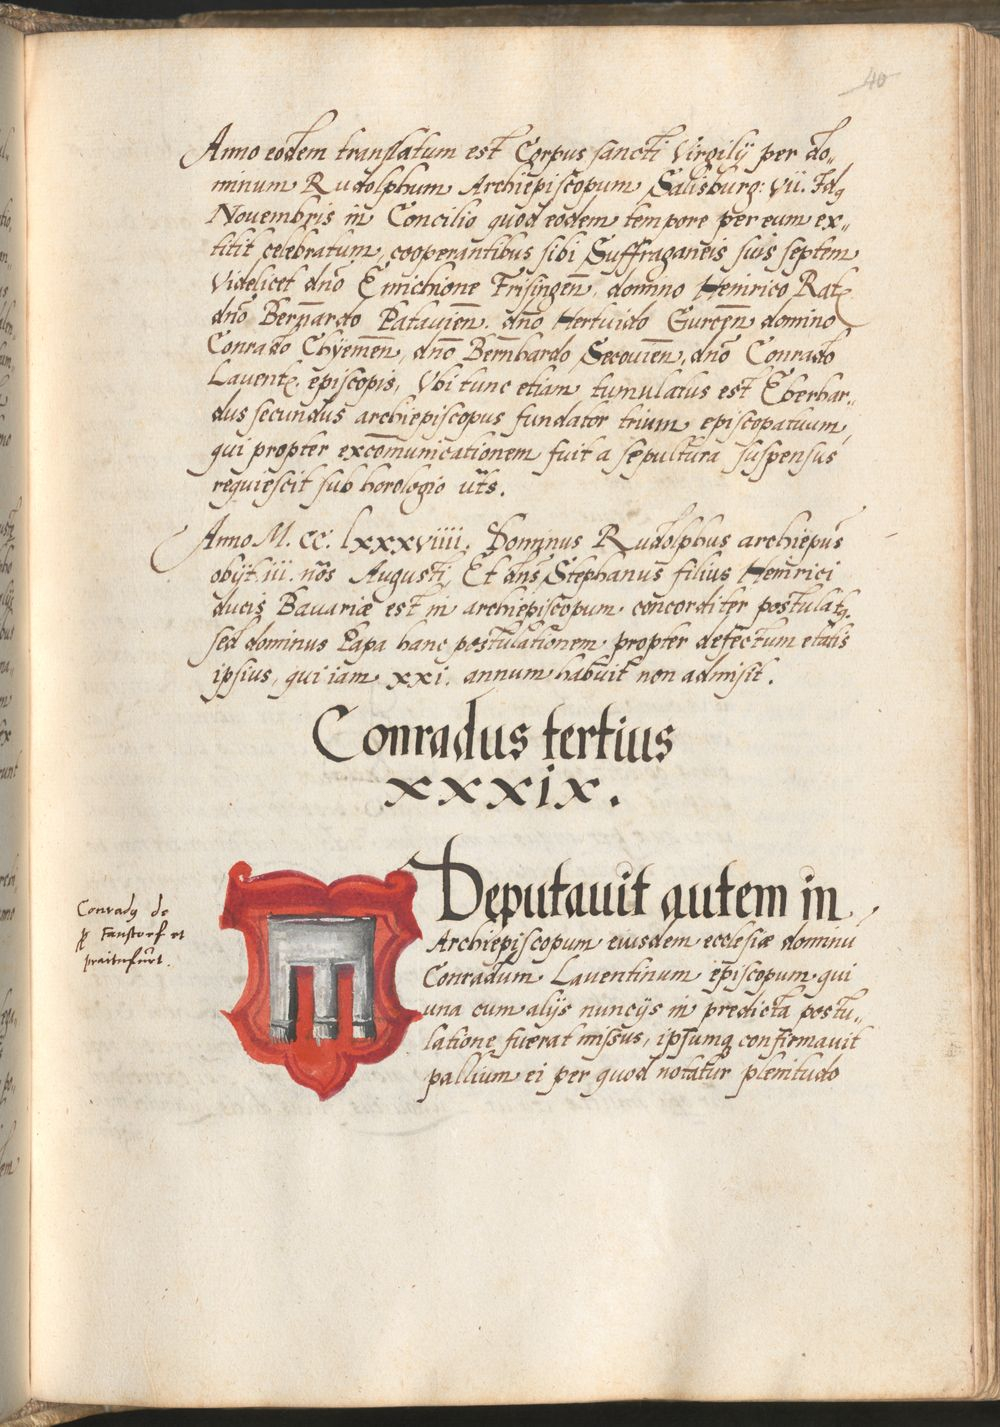 40
Anno eodem translatum est Corpus sancti Virgilij per do„
minum Rudolphum Archiepiscopum Salisburg: vii. Idq
Novembris in Concilio quod eodem tempore per eum ex„
titit celebratum, cooperantibus sibi Suffraganeis suis septem
Videlicet dnō Emichione Frisingen̄, domino Heinrico Rat
dnō Bernardo Patavien̄. dnō Hertuido Gurcen̄ domino
Conrado Chyemen̄, dnō Bernhardo Secovien̄, dnō Conrado
Lavent. episcopis, Vbi tunc etiam tumulatus est Eberhar„
dus secundus archiepiscopus fundator trium episcopatuum,
qui propter excōmunicationem fuit a sepultura suspensus
requiescit sub horologio uts.
Anno M. CC. lxxxviiii. Dominus Rudolphus archiepūs
obijt iii. nōs Augusti, Et dns Stephanus filius Heinrici
ducis Bavariæ est in archiepiscopum concorditer postulatq.
sed dominus Papa hanc postulationem propter defectum etatis
ipsius, qui iam xxi. annum habuit non admisit.
Conradus tertius
xxxix.
Deputavit autem in
Archiepiscopum eiusdem ecclesiæ dominū
Conradum Laventinum episcopum qui
una cum alijs nuncijs in predicta postu„
latione fuerat missus, ipsumq confirmavit
pallium ei per quod notatur plenitudo
Conradq de
Fanstorf et
praitnfurt.